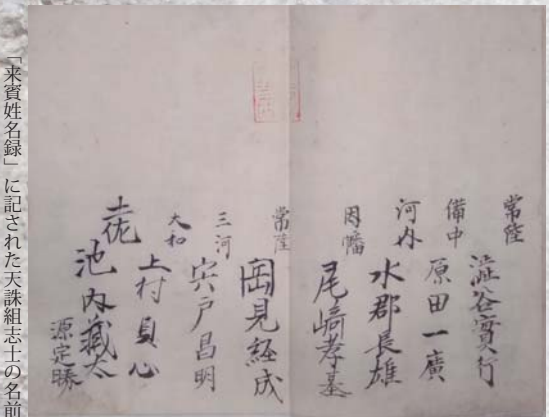 常陸 澁谷實行
備中 原田一廣
河内 水郡長雄
因幡 尾﨑孝基
常陸 岡見経成
三河 宍戸昌明
大和 上村貞心
土佐 池内蔵太 源定勝
「来賓姓名録」に記された天誅組志士の名前